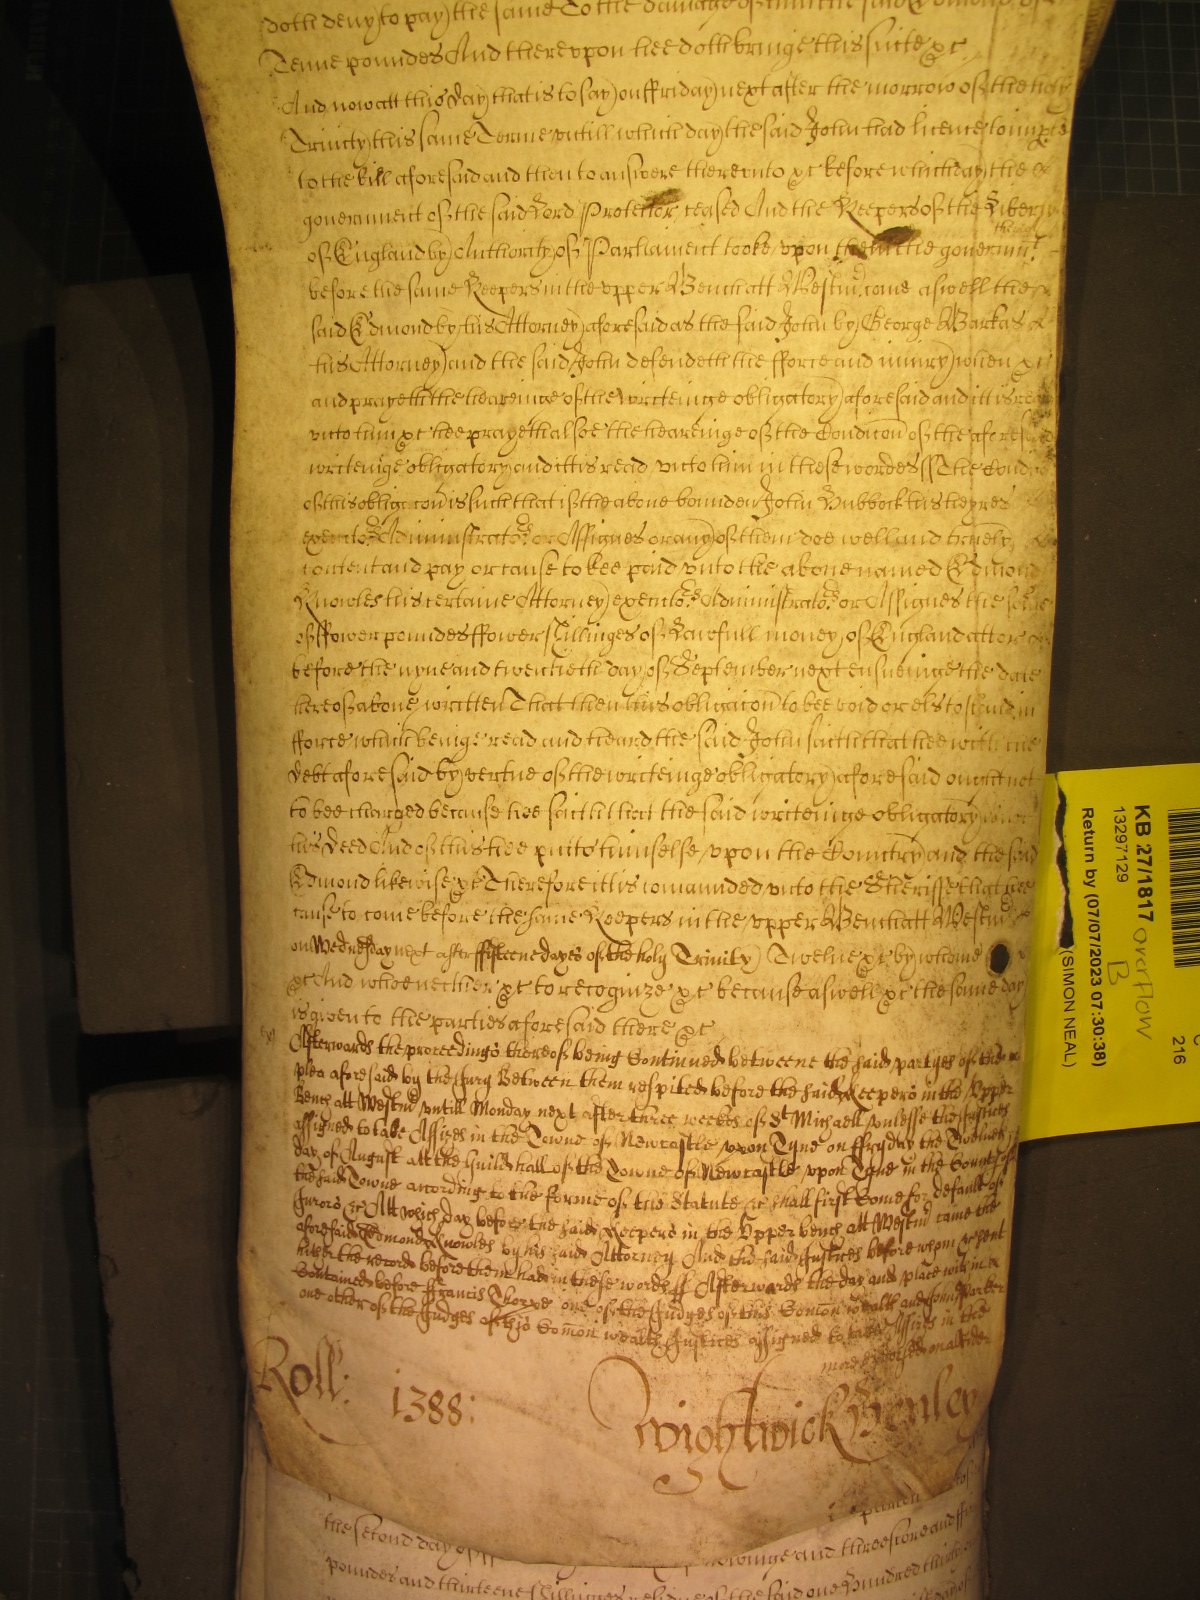 doth deny to pay the same To the damage of him the said Edmond of
Tenne poundes And thereupon hee doth bringe this suite &c
And now att this day that is to say on ffriday next after the morrow of the holy
Trinity this same Terme untill which day the said John had licence to imparle
to the bill aforesaid and then to answere thereunto &c before which day the
government of the said Lord Protector ceased And the Keepers of the Liberty
of England by Authority of Parliament tooke upon them the governmt
before the same Keepers in the upper Bench att Westmr come aswell the
said Edmond by his Attorney aforesaid as the said John by George Barkas
his Attorney and the said John defendeth the fforce and iniury when &c
and prayeth the heareinge of the writeinge obligatory aforesaid and it is read
unto him &c hee prayeth alsoe the heareinge of the Condicon of the aforesaid
writeinge obligatory and itt is read unto him in these wordes ss The Condicon
of this obligacon is such that if the above bounden John Bubbock his heyres
executors Administrators or Assignes or any of them doe well and truely
content and pay or cause to bee paid unto the above named Edmond
Knowles his certaine Attorney executors Administrators or Assignes the some
of ffower poundes ffower shillinges of Lawfull money of England att or
before the nyne and twentieth day of September next ensueinge the date
hereof above written That then this obligacon to bee void or els to stand in
fforce which beinge read and heard the said John saith that hee with the
debt aforesaid by vertue of the writeinge obligatory aforesaid ought not
to bee charged because hee saith that the said writeinge obligatory is not
his Deed And of this hee putts himselfe upon the Country and the said
Edmond likewise &c Therefore itt is comaunded unto the Sheriffe that hee
cause to come before the same Keepers in the upper Bench att Westmr
on Wednesday next after ffifteene dayes of the holy Trinity Twelve &c by whome
&c And who neither &c to recognize &c because aswell &c the same day
is given to the parties aforesaid there &c
Afterwards the proceedings thereof being Continued betweene the said partyes of the
plea aforesaid by the Jury Between them respited before the said Keepers in the Upper
Bench att Westmr untill Monday next after three weekes of St Michaell unlesse the Justices
assigned to take Assizes in the Towne of Newcastle upon Tyne on ffryday the Twelveth
day of August att the Guildhall of the Towne of Newcastle upon Tyne in the County of
the said Towne according to the forme of the Statute &c shall first Come for default of
Jurors &c Att which day before the said Keepers in the Upper bench att Westmr came the
aforesaid Edmond Knowles by his said Attorney And the said Justices before whom &c sent
hither the record before them had in these words ss Afterwards the day and place within
Contained before ffrancis Thorpe one of the Judges of this Comon wealth and John Parker
one other of the Judges of this Comon wealth Justices assigned to take Assizes in the
more endorsed on altside
Roll: 1388: Wightwick Henley
the second day of
poundes and thirteene shillinges residue of the said one hundred
KB 27/1817 overflow
B
13297129
Return by (07/07/2023 07:30:38)
(SIMON NEAL)
216